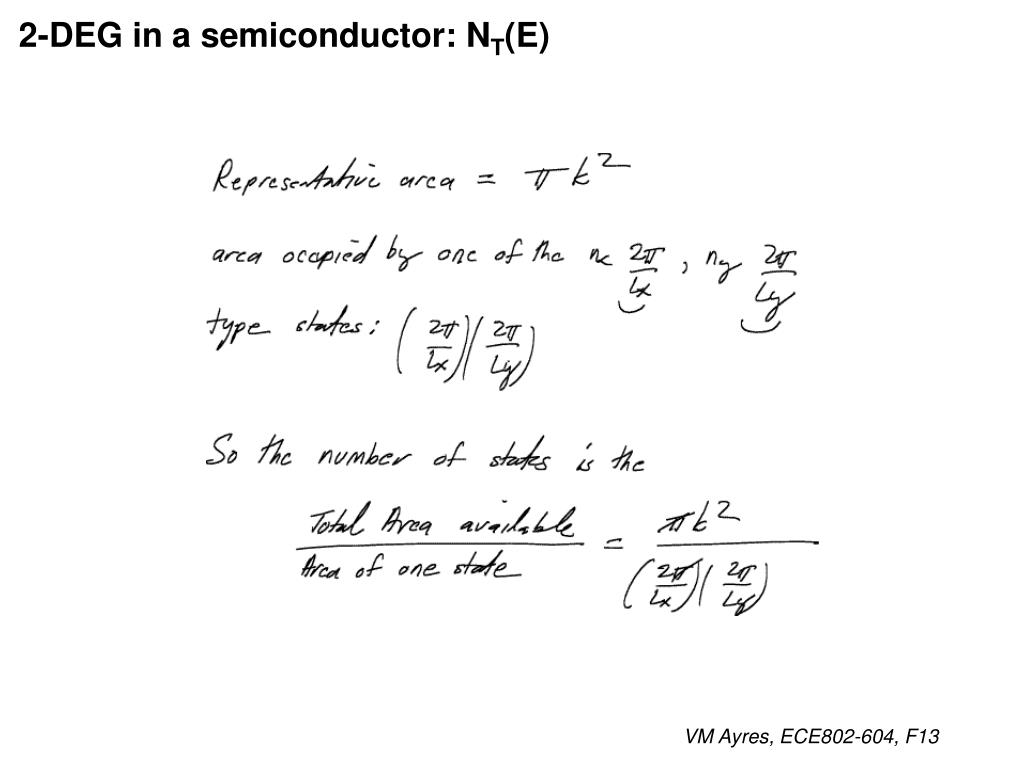 2-DEG in a semiconductor: N_T(E)
Representative area = πk²
area occupied by one of the nx 2π/Lx, ny 2π/Ly
type states: (2π/Lx)(2π/Ly)
So the number of states is the
Total Area available / Area of one state = πk² / (2π/Lx)(2π/Ly)
VM Ayres, ECE802-604, F13